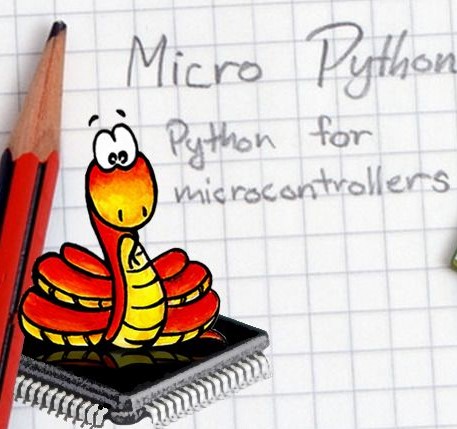 Micro Python
Python for
microcontrollers